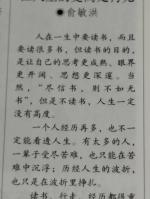 ●俞敏洪
人在一生中要读书，而且
要读很多书，但读书的目的，
是让自己的思考更成熟、眼界
更开阔、思想更深邃。当
然，“尽信书，则不如无
书”，但是不读书，人生一定
没有高度。
一个人经历再多，也不一
定能看透人生。有太多的人，
一辈子受尽苦难，也只能在苦
难中沉浮；历经人生的波折，
也只是在波折里挣扎。
读书、行走、经历都很重